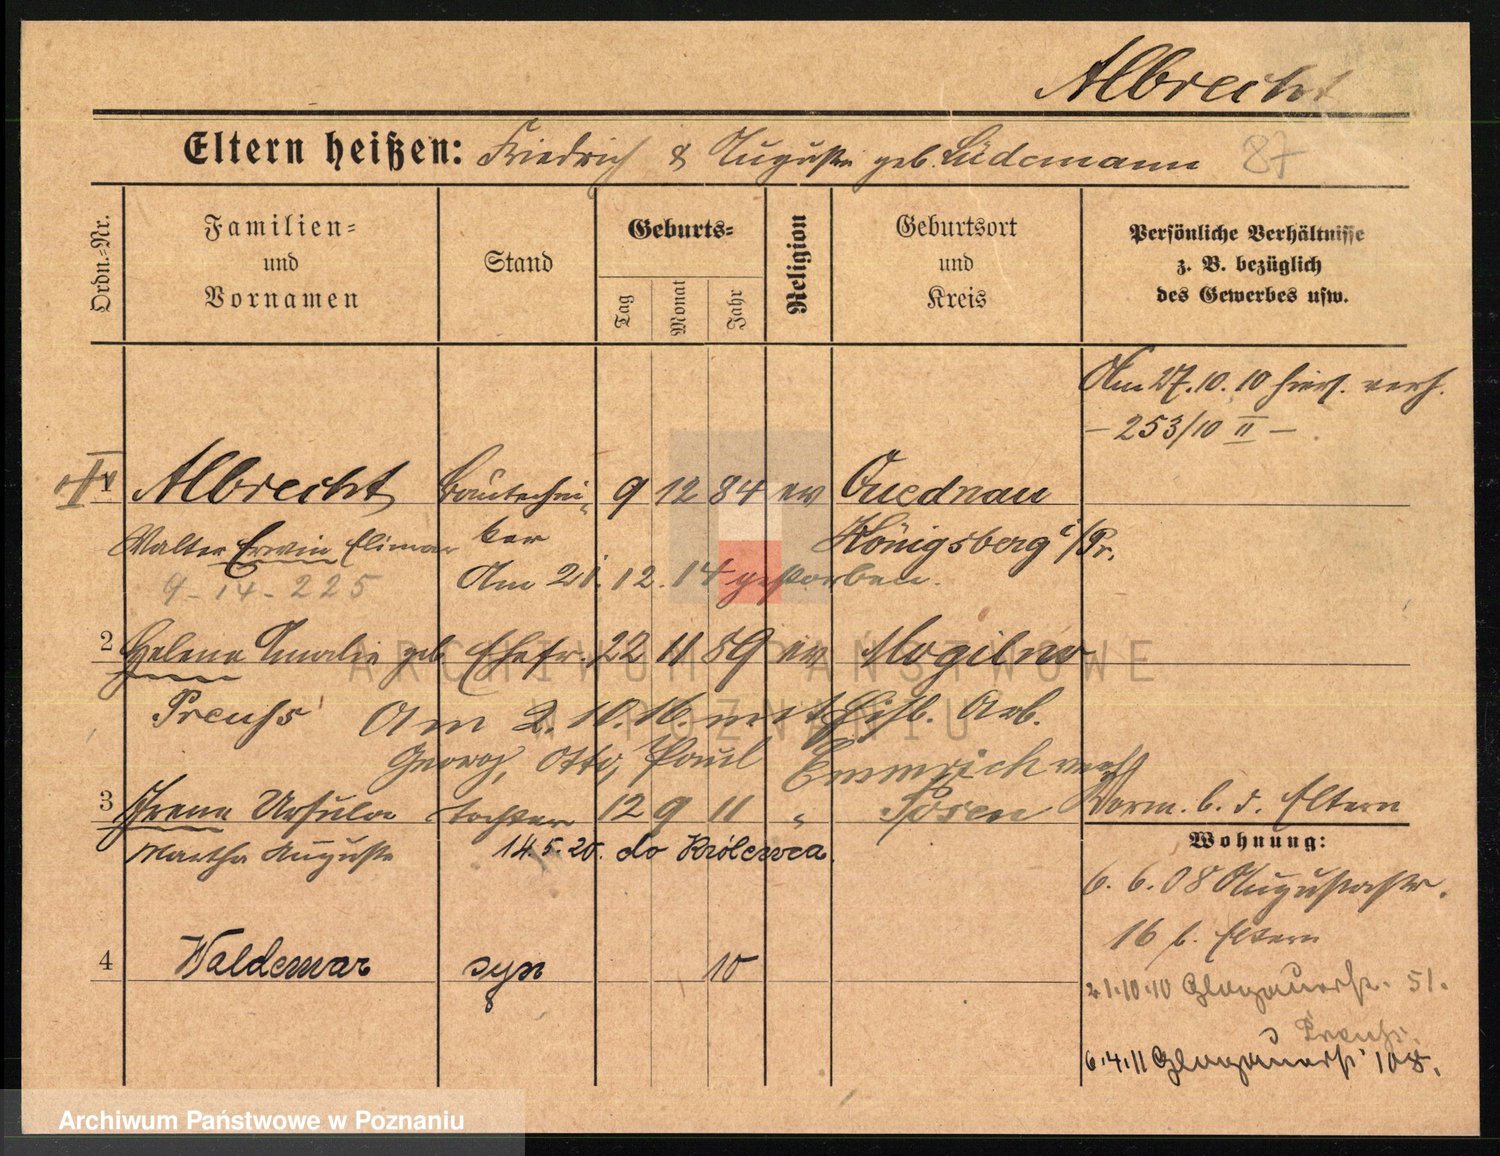 Albrecht
Eltern heißen: Friedrich & Auguste geb. Lüdemann 87
Ordn.-Nr.
Familien- und Vornamen
Stand
Geburts-
Tag
Monat
Jahr
Religion
Geburtsort und Kreis
Persönliche Verhältnisse z. B. bezüglich des Gewerbes usw.
Am 27.10.10 hiers. verh.
– 253/10 II –
1 Albrecht Bautechni- 9 12 84 ev Quednau
Walter Erwin Elimar ker Königsberg i/Pr.
9-14-225 Am 21.12.14 gestorben.
2 Helene Amalie geb. Ehefr. 22 11 89 ev Mogilno
Preuhs Am 2.10.16. mit Hilb. Arb.
Georg, Otto, Paul Emmrich verh
3 Irene Ursula Tochter 12 9 11 " Posen Verm. b. d. Eltern
Martha Auguste 14.5.20. do Królewca.
Wohnung:
6.6.08 Augustastr.
16 b. Eltern
4 Waldemar syn 10
21.10.10 Glogauerstr. 51.
Preuhs.
6.4.11 Glogauerstr 108.
ARCHIWUM PAŃSTWOWE
W POZNANIU
Archiwum Państwowe w Poznaniu